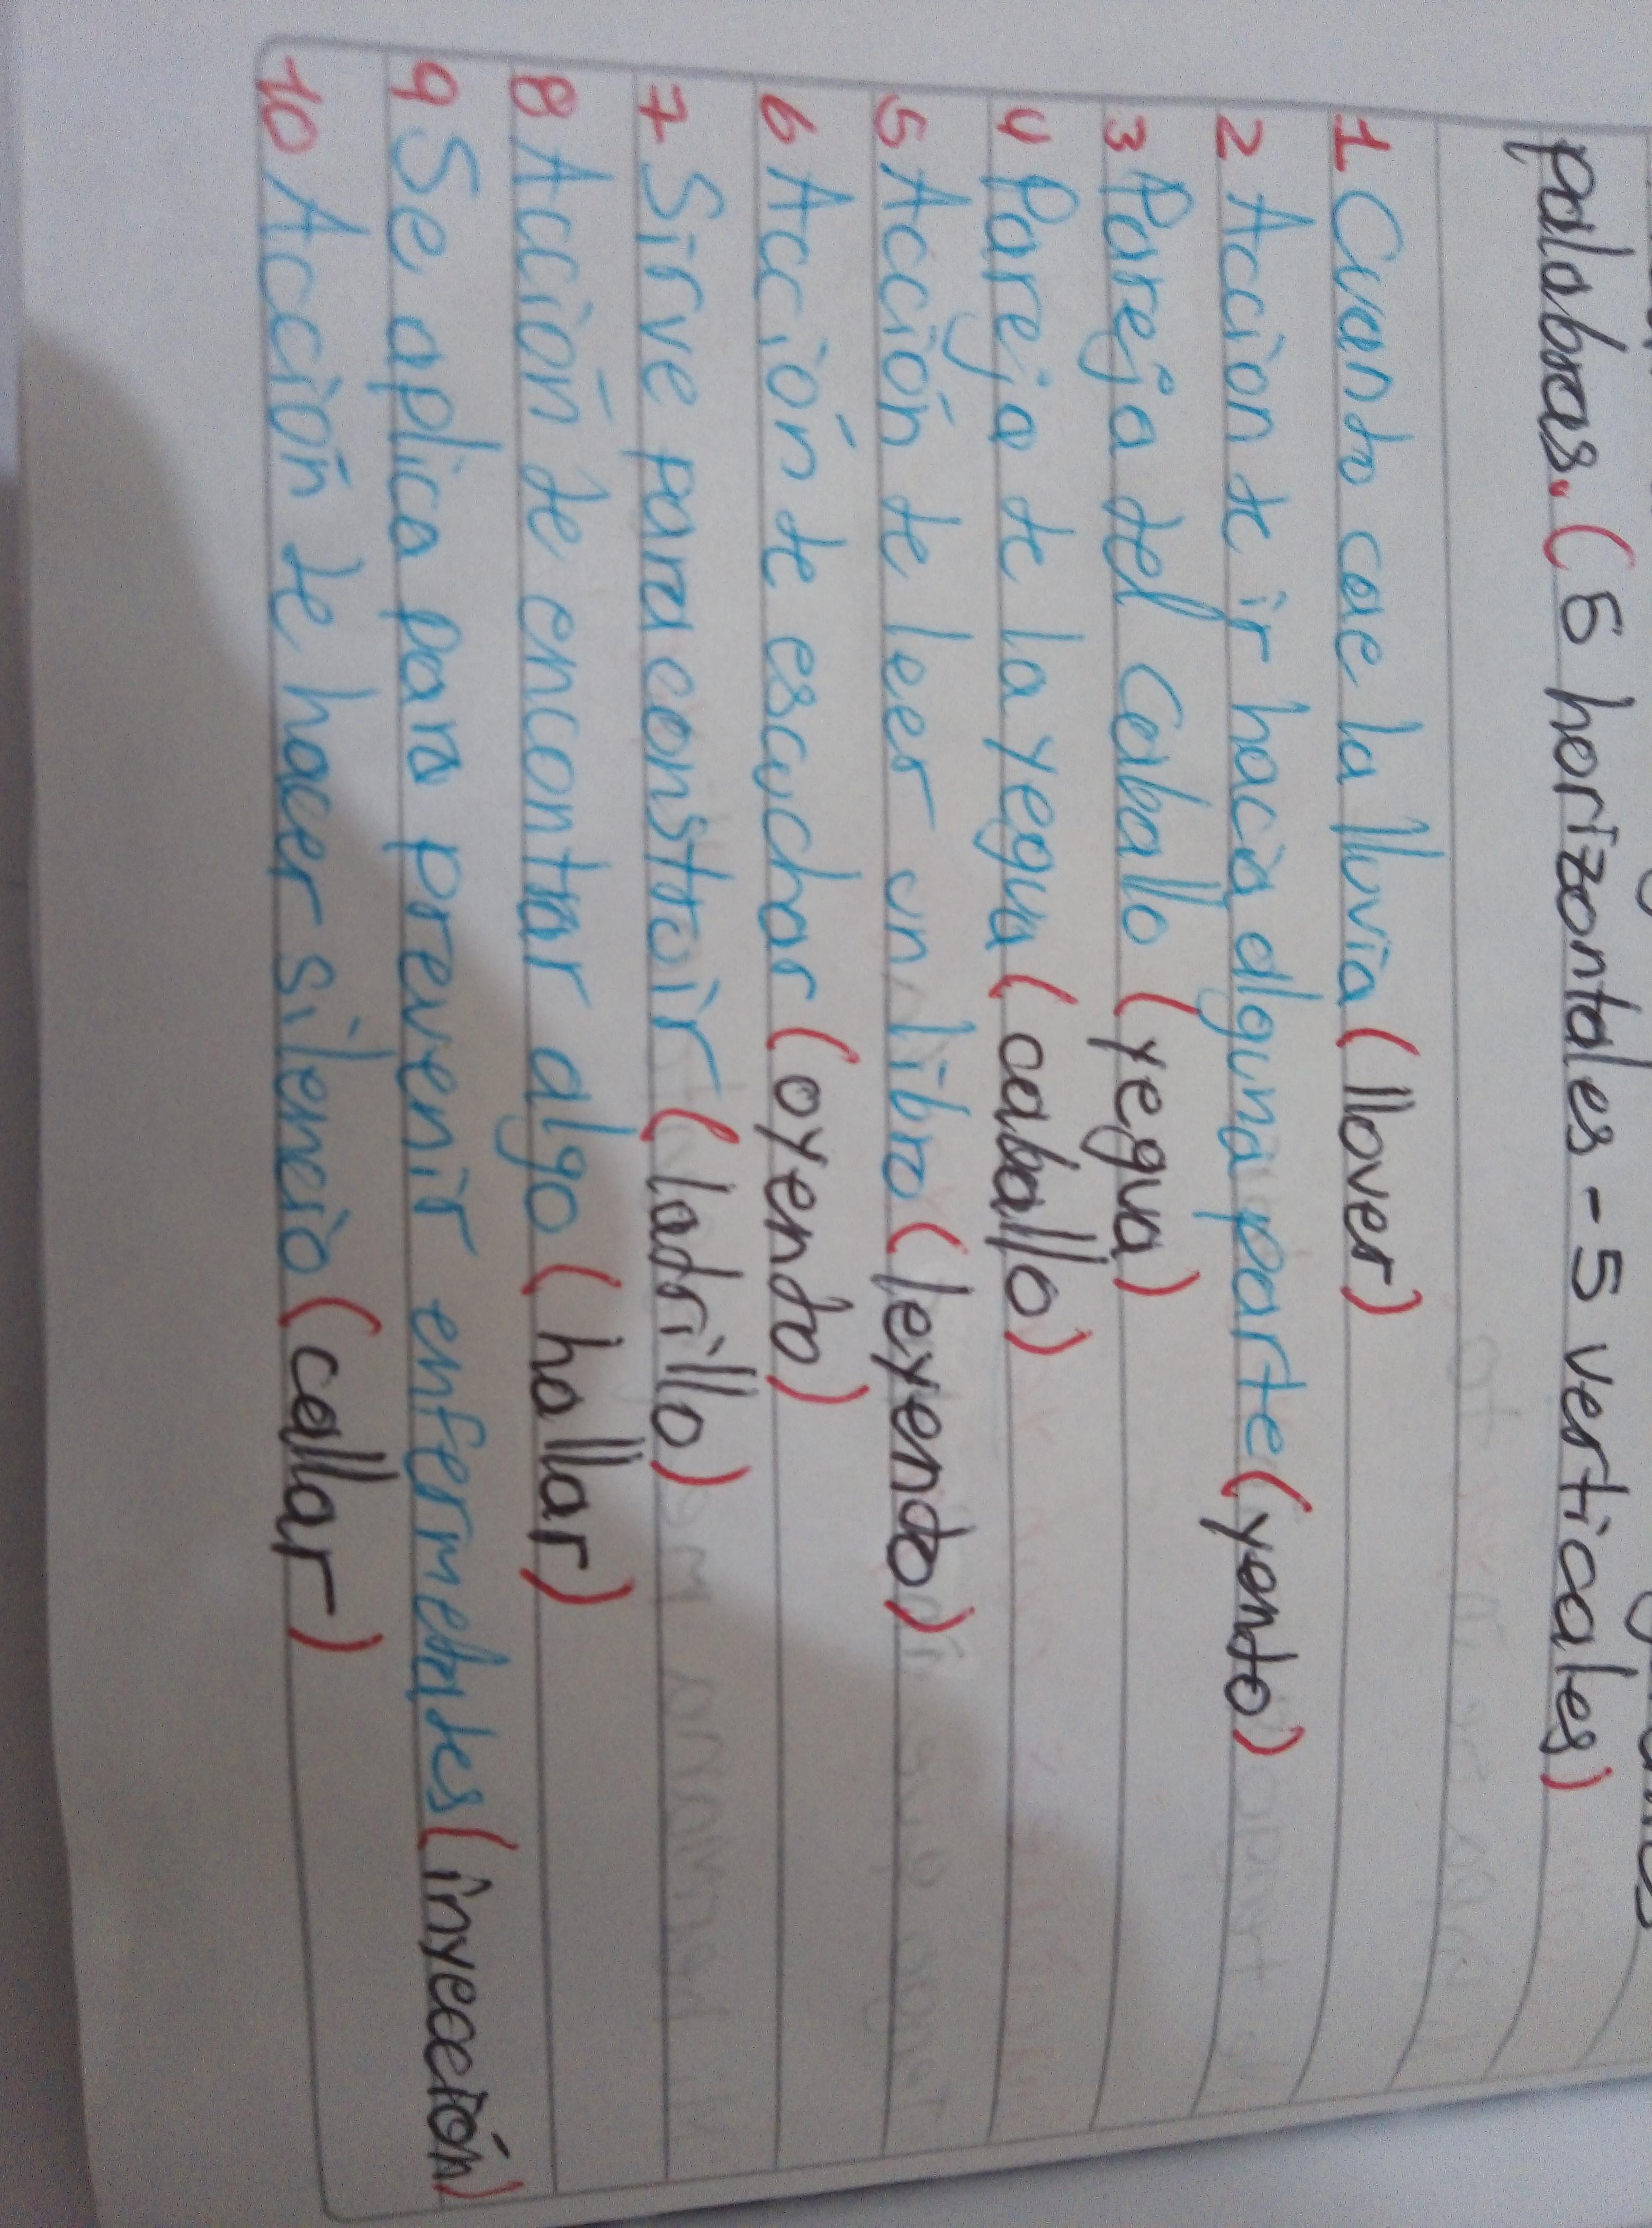 palabras. (5 horizontales - 5 verticales)
1 Cuando cae la lluvia (llover)
2 Acción de ir hacia alguna parte (yendo)
3 Pareja del Caballo (yegua)
4 Pareja de la yegua (caballo)
5 Acción de leer un libro (leyendo)
6 Acción de escuchar (oyendo)
7 Sirve para constroir (ladrillo)
8 Acción de encontrar algo (hallar)
9 Se aplica para prevenir enfermedades (inyección)
10 Acción de hacer silencio (callar)